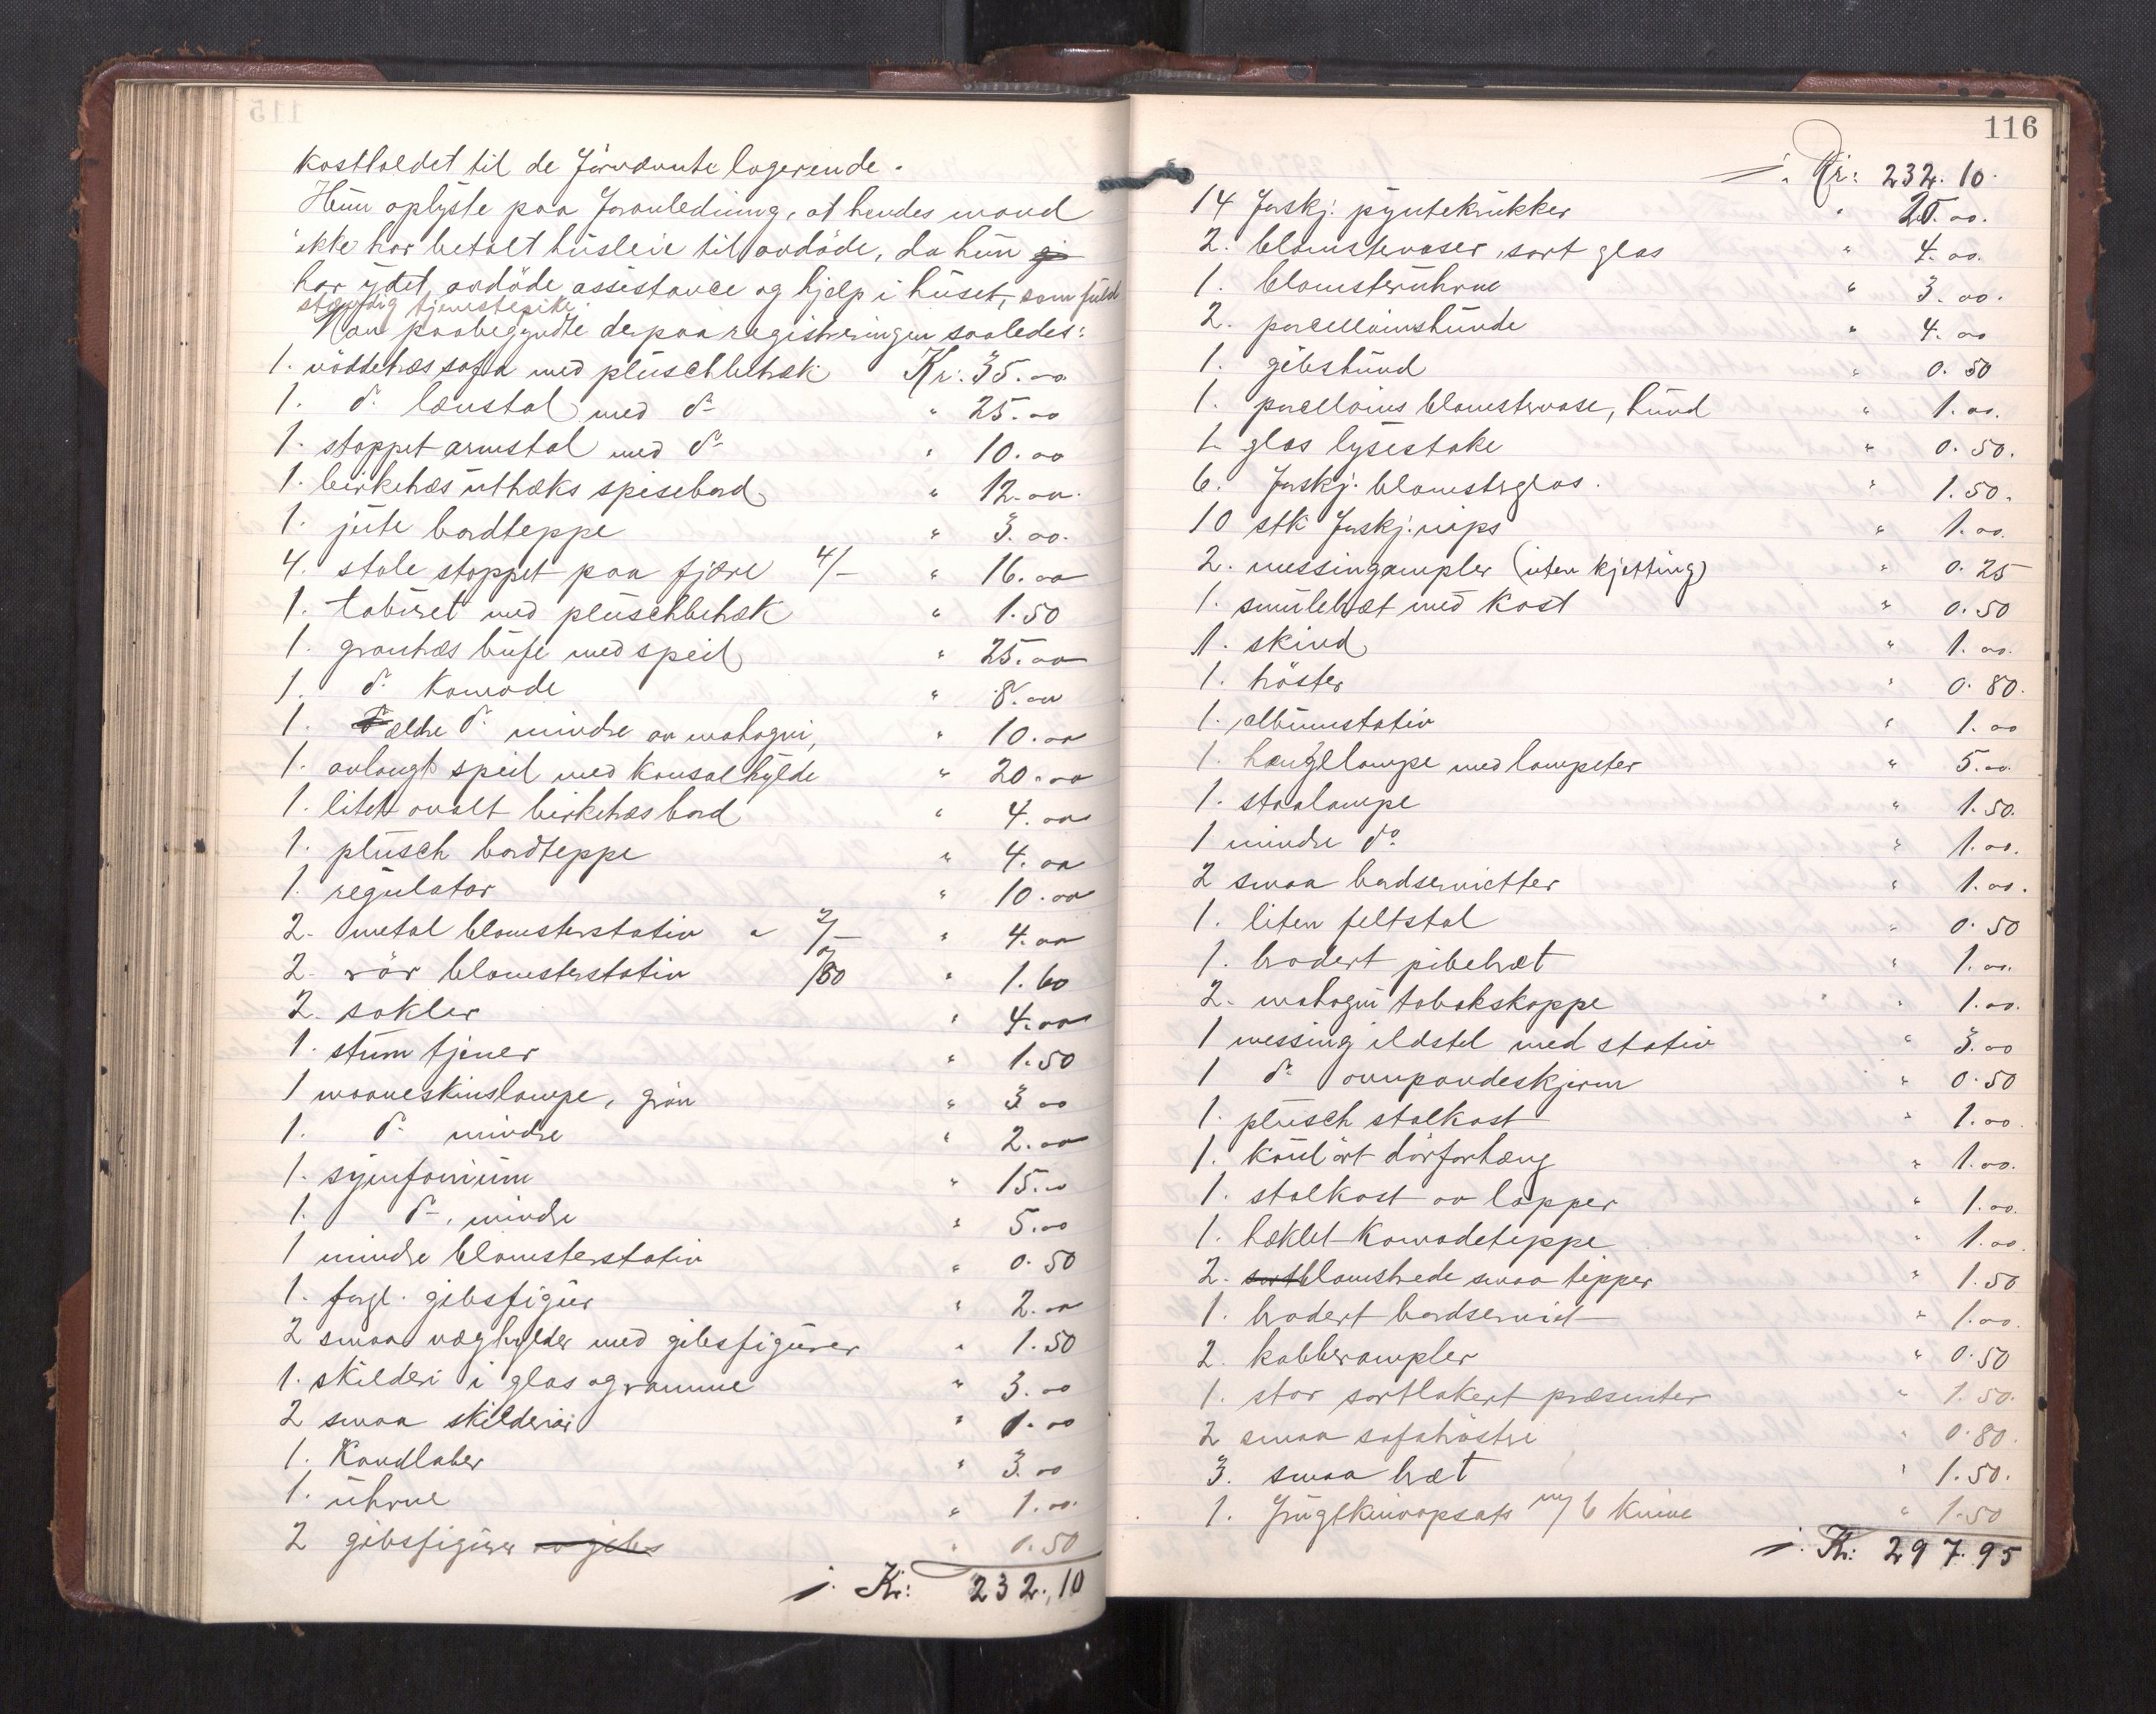 kostholdet til de förnævnte logerende.
Hun oplyste paa foranledning, at hendes mand
ikke har betalt husleie til avdöde, da hun
har ydet avdöde assistance og hjelp i huset, som fuld-
stændig tjenestepike.
Man paabegyndte derpaa registreringen saaledes:
1. nöddetræs sofa med plüschbetræk Kr. 35.00
1. do lænstol med do " 25.00
1. stoppet armstol med do " 10.00
1. birketræs uttræks spisebord " 12.00
1. jute bordteppe " 3.00
4. stole stoppet paa fjære 4/- " 16.00
1. taburet med plüschbetræk " 1.50
1. grantræs bufe med speil " 25.00
1. do komode " 8.00
1. ældre do mindre av mahogni, " 10.00
1. avlangt speil med konsolhylde " 20.00
1. litet ovalt birketræs bord " 4.00
1. plüsch bordteppe " 4.00
1. regulator " 10.00
2. metal blomsterstativ a 2/- " 4.00
2. rör blomsterstativ /80 " 1.60
2. sokler " 4.00
1. stum tjener " 1.50
1 maaneskinslampe, grön " 3.00
1. do mindre " 2.00
1. symfonium " 15.00
1. do, mindre " 5.00
1 mindre blomsterstativ " 0.50
1. fargl. gibsfigur " 2.00
2 smaa væghylder med gibsfigurer " 1.50
1. skilderi i glas og ramme " 3.00
2 smaa skilderier " 1.00
1. Kandlaber " 3.00
1. uhrne " 1.00
2 gibsfigurer av gibs " 0.50
i. Kr: 232.10
116
i. Kr: 232.10
14 forskj. pyntekrukker " 25.00
2. blomstervaser, sort glas " 4.00
1. blomsteruhrne " 3.00
2. porcellainshunde " 4.00
1. gibshund " 0.50
1. porcellains blomstervase, hund " 1.00
1 glas lysestake " 0.50
6. forskj. blomsterglas. " 1.50
10 stk forskj. nips " 1.00
2. messingampler (uten kjetting) " 0.25
1. smulebræt med kost " 0.50
1. skind " 1.00
1. tröster " 0.80
1. albumstativ " 1.00
1. hængelampe med lampeter " 5.00
1. staalampe " 1.50
1 mindre do " 1.00
2 smaa bordservietter " 1.00
1. liten feltstol " 0.50
1. brodert pibebræt " 1.00
2. mahogni tobakskoppe " 1.00
1 messing ildstel med stativ " 3.00
1 do ovnpandeskjerm " 0.50
1. plüsch stolkast " 1.00
1. kulört dörforhæng " 1.00
1. stolkast av lapper " 1.00
1. hæklet komodeteppe " 1.00
2. blomstrede smaa tepper " 1.50
1. brodert bordserviet " 1.00
2. kobberampler " 0.50
1. stor sortlakert præsenter " 1.50
2 smaa sofatröstre " 0.80
3. smaa bræt " 1.50
1. frugtknivopsats m/ 6 knive " 1.50
i. Kr: 297.95